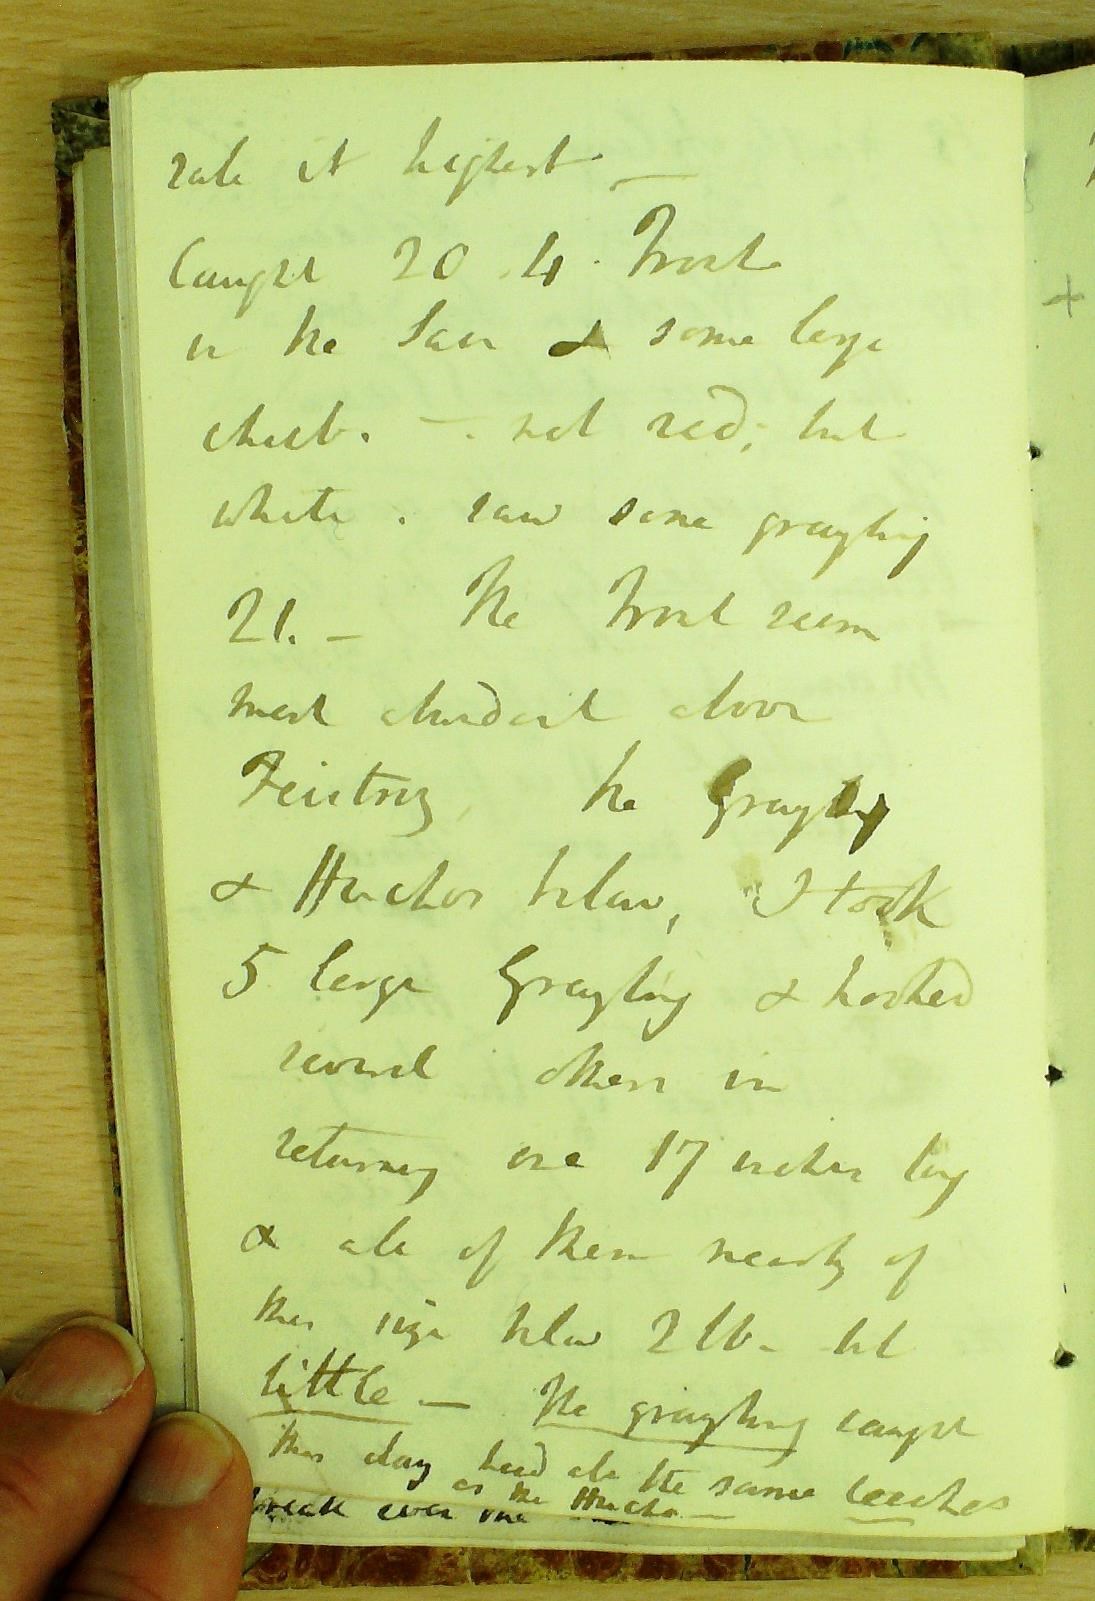 rate it highest —
Caught 20. 4. Trout
in the Sau & some large
chub. — not red; but
white. saw some grayling
21. — The Trout seem
most abundant above
Feistriz, the Grayling
& Huchos below, I took
5 large Grayling & hooked
several others in
returning one 17 inches long
& all of them nearly of
this size below 2 lb. but
little — The grayling caught
this day had all the same leeches
as the Hucho —
break over one